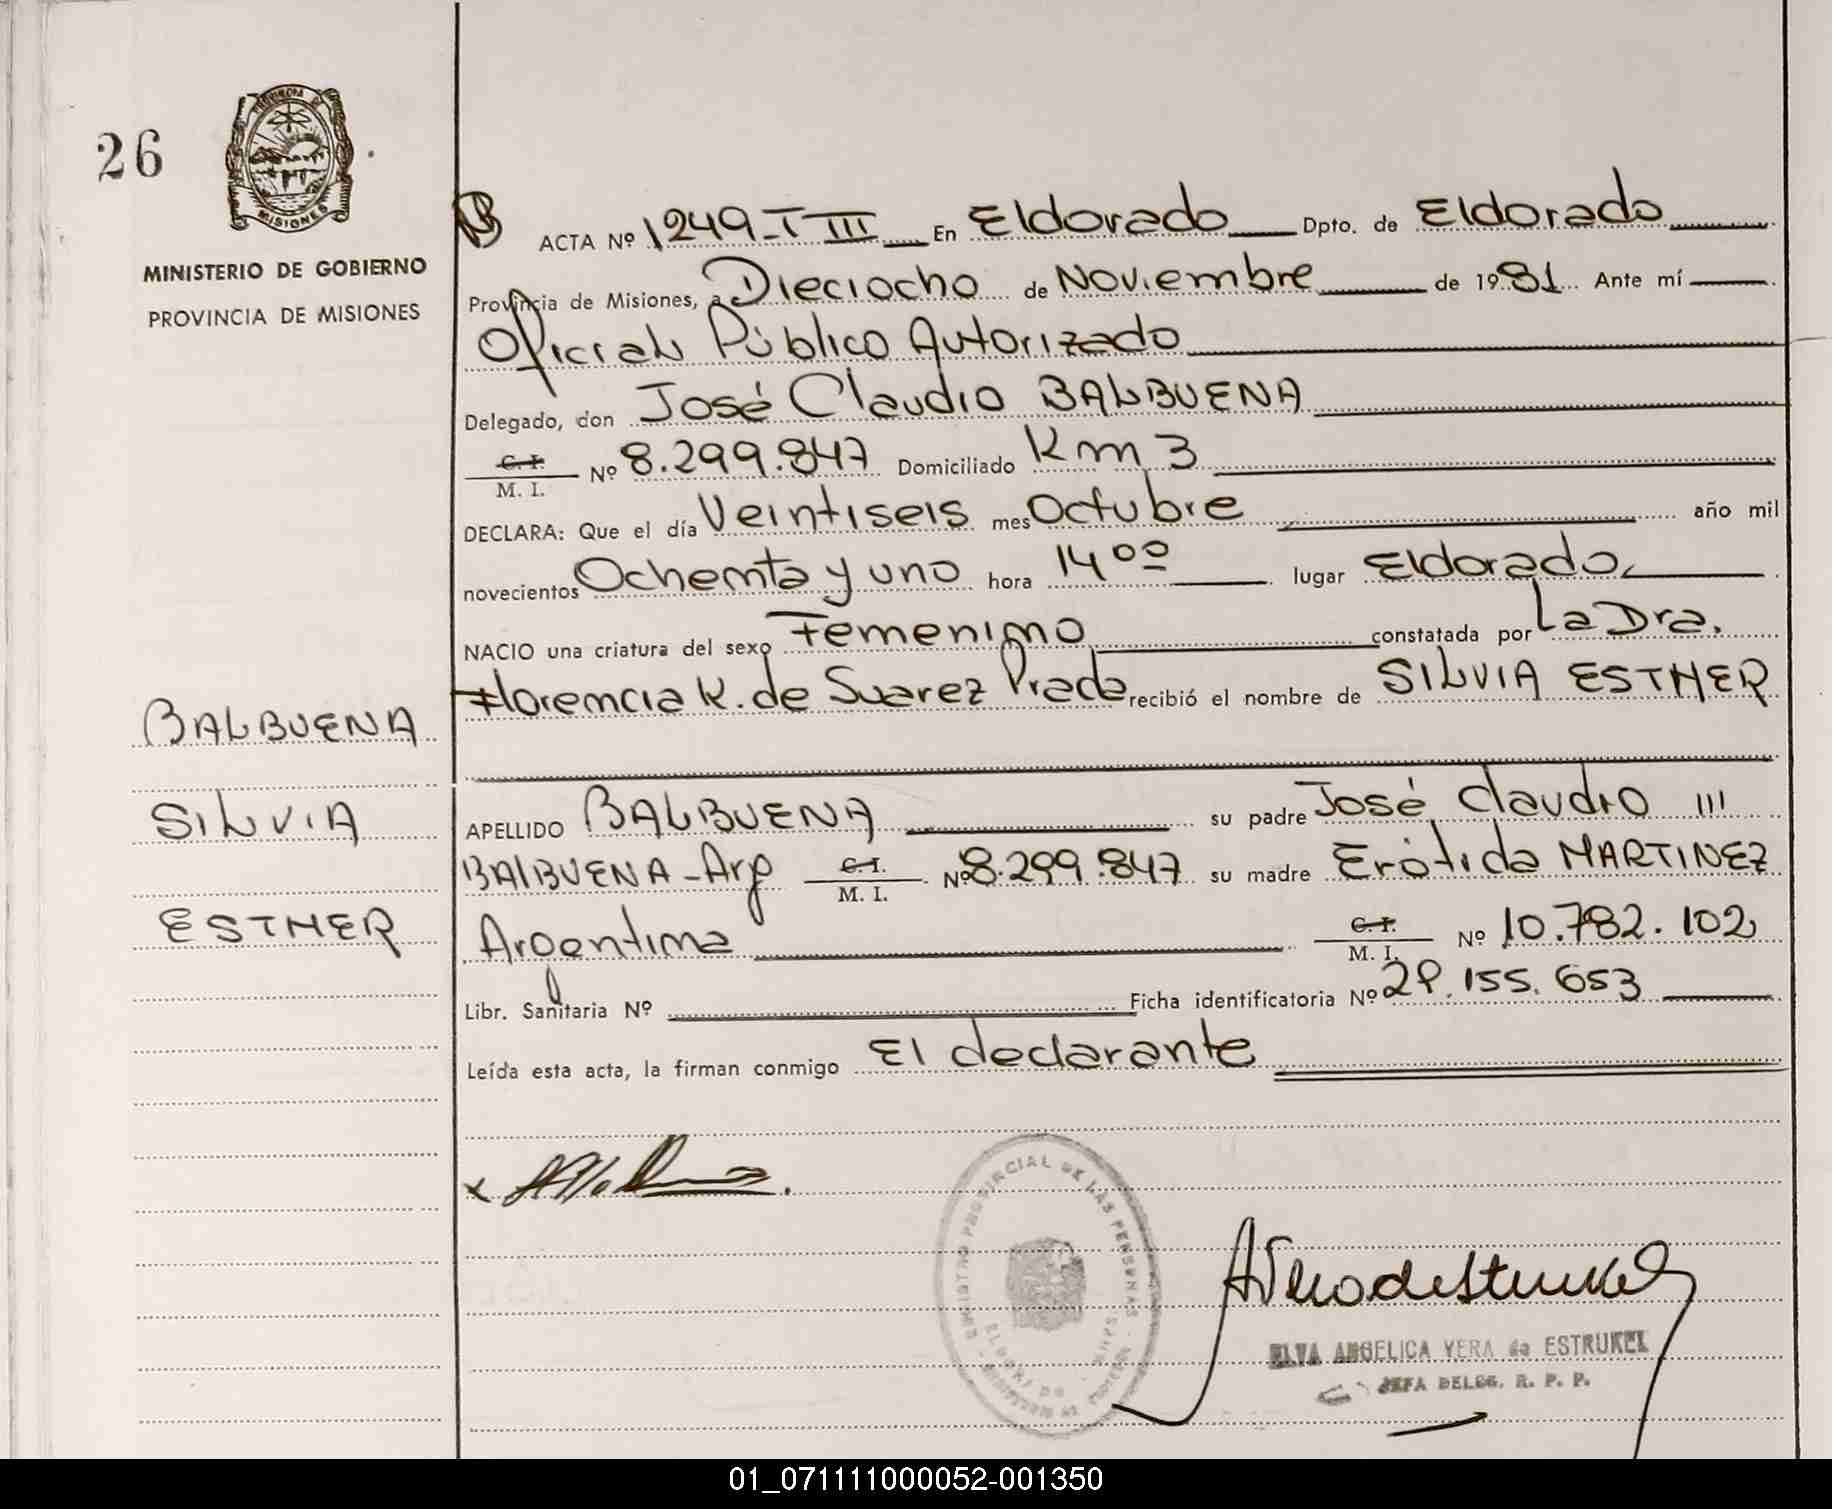 26
PROVINCIA DE
MISIONES
MINISTERIO DE GOBIERNO
PROVINCIA DE MISIONES
ACTA Nº 1249-T III En Eldorado Dpto. de Eldorado
Provincia de Misiones, a Dieciocho de Noviembre de 1981 Ante mí
Oficial Público Autorizado
Delegado, don José Claudio BALBUENA
C. I.
M. I. Nº 8.299.847 Domiciliado Km 3
DECLARA: Que el día Veintiseis mes Octubre año mil
novecientos Ochenta y uno hora 14 00 lugar Eldorado
NACIO una criatura del sexo Femenino constatada por La Dra.
Florencia K. de Suarez Prada recibió el nombre de SILVIA ESTHER
BALBUENA
SILVIA
ESTHER
APELLIDO BALBUENA su padre José Claudio
BALBUENA - Arg C. I.
M. I. Nº 8.299.847 su madre Erótida MARTINEZ
Argentina C. I.
M. I. Nº 10.782.102
Libr. Sanitaria Nº Ficha identificatoria Nº 29.155.653
Leída esta acta, la firman conmigo El declarante
REGISTRO PROVINCIAL DE LAS PERSONAS
ELDORADO
ELVA ANGELICA VERA de ESTRUKEL
JEFA DELEG. R. P. P.
01_071111000052-001350